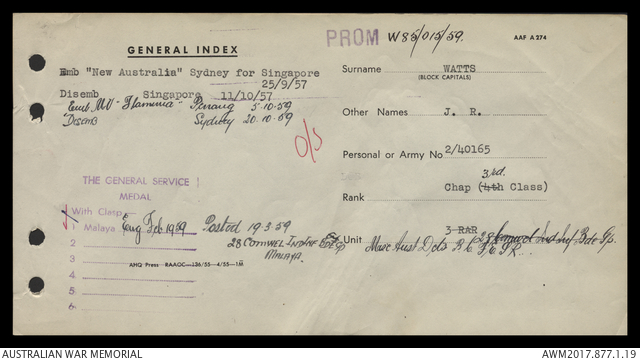 PROM W85/015/59.
AAF A274
GENERAL INDEX
Emb "New Australia" Sydney for Singapore
25/9/57
Disemb Singapore 11/10/57
Emb MV "Flaminia" Penang 5.10.59
"Disemb Sydney 20.10.59
O/S
Surname WATTS
(BLOCK CAPITALS)
Other Names J. R.
Personal or Army No. 2/40165
3rd.
Rank Chap (4th Class)
Unit 3 RAR 28 Comwel Ind Inf Bde Gp.
Misc Aust Dets
THE GENERAL SERVICE
MEDAL
With Clasp
1 Malaya Feb 1959 Posted 19.3.59
2
28 COMWEL IND INF BDE GP
MALAYA.
3
AHQ Press RAAOC—136/55—4/55—1M
4
5
6
AUSTRALIAN WAR MEMORIAL
AWM2017.877.1.19